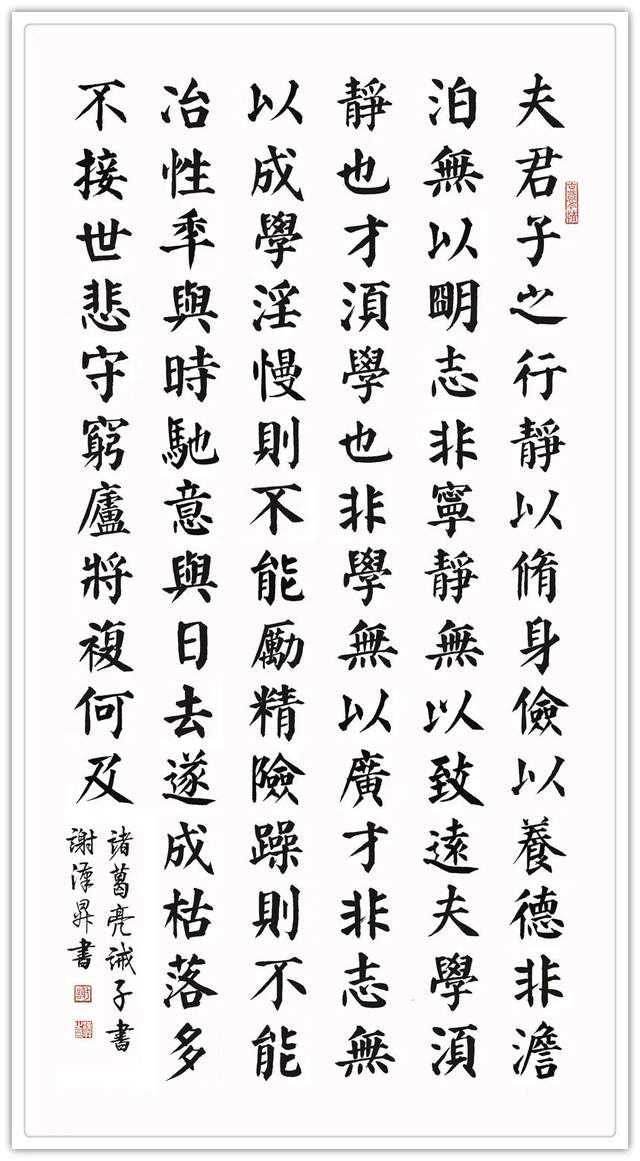 夫君子之行靜以脩身儉以養德非澹
泊無以明志非寧靜無以致遠夫學須
靜也才須學也非學無以廣才非志無
以成學淫慢則不能勵精險躁則不能
冶性年與時馳意與日去遂成枯落多
不接世悲守窮廬將複何及
諸葛亮誡子書
謝澤昇書